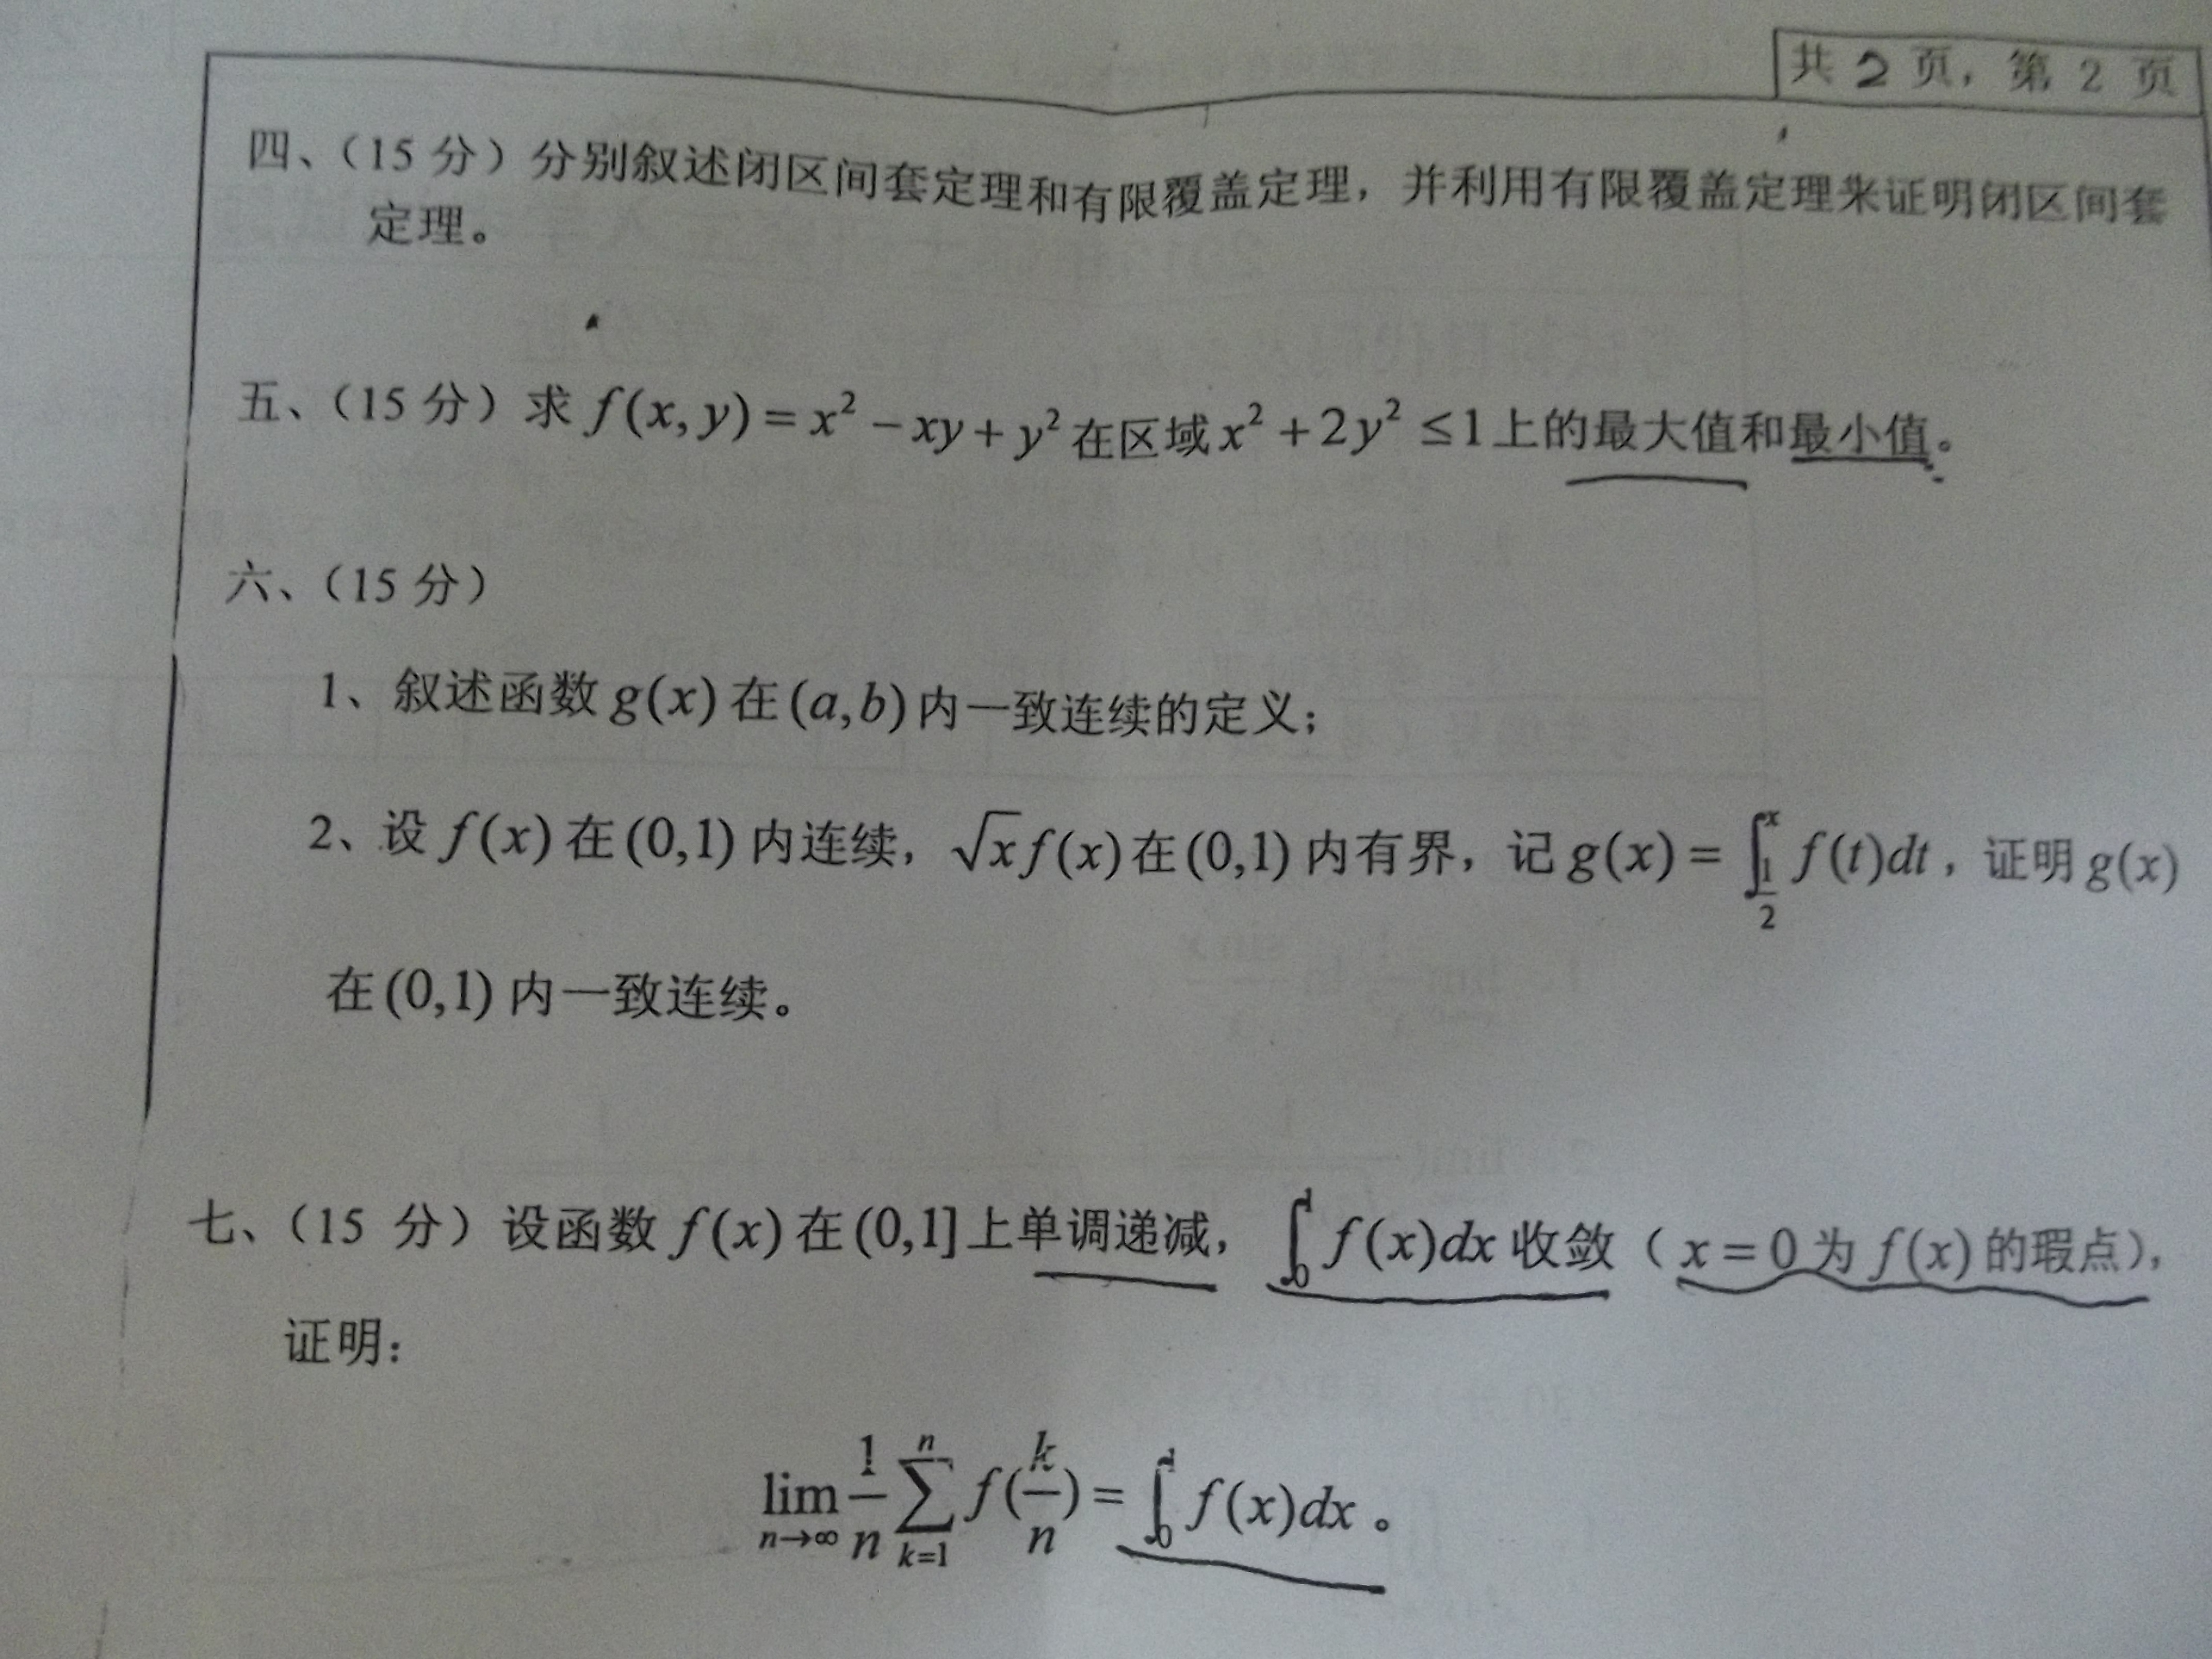 共 2 页，第 2 页
四、（15 分）分别叙述闭区间套定理和有限覆盖定理，并利用有限覆盖定理来证明闭区间套
定理。
五、（15 分）求 f(x,y)=x²−xy+y² 在区域 x²+2y²≤1 上的最大值和最小值。
六、（15 分）
1、叙述函数 g(x) 在 (a,b) 内一致连续的定义；
2、设 f(x) 在 (0,1) 内连续，√x f(x) 在 (0,1) 内有界，记 g(x)=∫_{1/2}^{x} f(t)dt，证明 g(x)
在 (0,1) 内一致连续。
七、（15 分）设函数 f(x) 在 (0,1] 上单调递减，∫_0^1 f(x)dx 收敛（x=0 为 f(x) 的瑕点），
证明：
lim_{n→∞} 1/n ∑_{k=1}^{n} f(k/n) = ∫_0^1 f(x)dx。